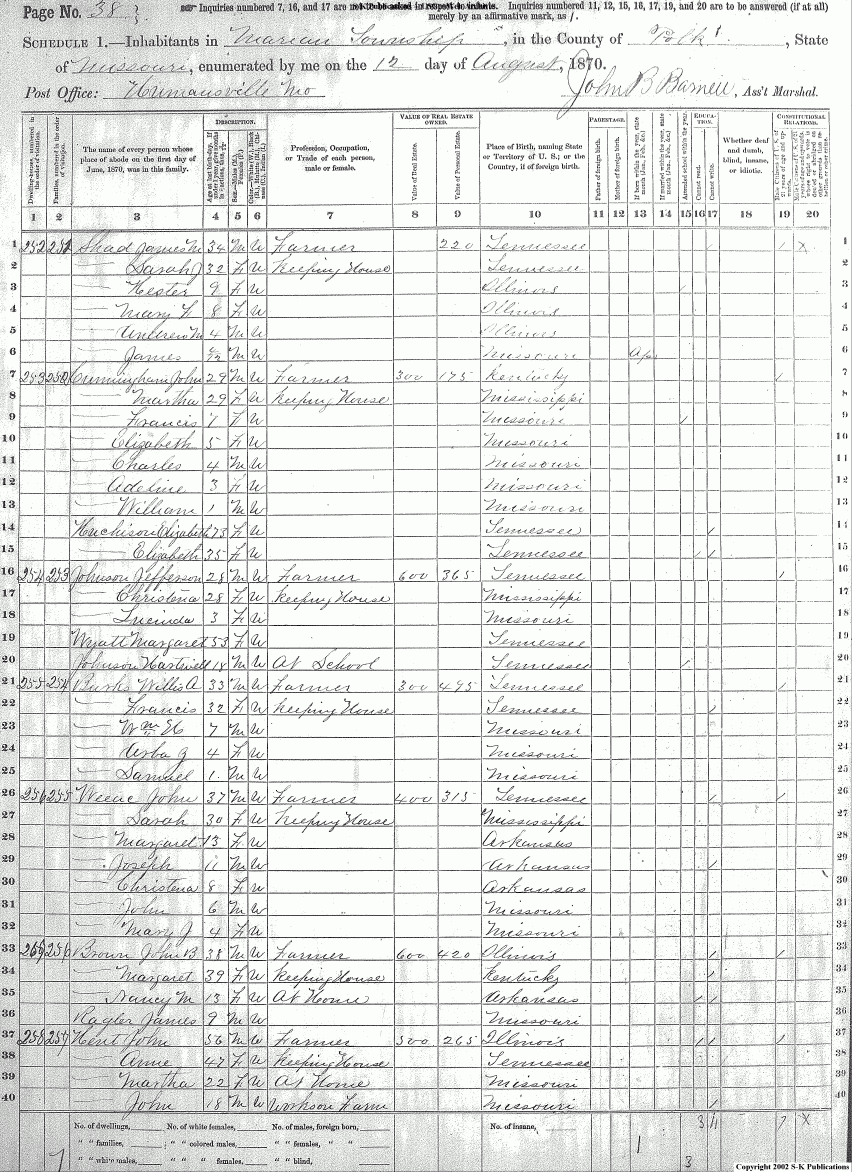 Page No. 38
Inquiries numbered 7, 16, and 17 are not to be asked in respect to infants. Inquiries numbered 11, 12, 15, 16, 17, 19, and 20 are to be answered (if at all)
merely by an affirmative mark, as /.
SCHEDULE 1.—Inhabitants in Marion Township, in the County of Polk, State
of Missouri, enumerated by me on the 12 day of August, 1870.
Post Office: Humansville Mo
John B Barnett, Ass't Marshal.
DESCRIPTION.
VALUE OF REAL ESTATE OWNED.
PARENTAGE.
EDUCATION.
CONSTITUTIONAL RELATIONS.
Dwelling-houses, numbered in the order of visitation.
Families, numbered in the order of visitation.
The name of every person whose place of abode on the first day of June, 1870, was in this family.
Profession, Occupation, or Trade of each person, male or female.
Value of Real Estate.
Value of Personal Estate.
Place of Birth, naming State or Territory of U. S.; or the Country, if of foreign birth.
Father of foreign birth.
Mother of foreign birth.
If born within the year, state month (Jan., Feb., &c.)
If married within the year, state month (Jan., Feb., &c.)
Attended school within the year.
Cannot read.
Cannot write.
Whether deaf and dumb, blind, insane, or idiotic.
1 2 3 4 5 6 7 8 9 10 11 12 13 14 15 16 17 18 19 20
1 252 Shad James M 34 M W Farmer 220 Tennessee / X 1
2 — Sarah J 32 F W Keeping House Tennessee 2
3 — Hester 9 F W Illinois / 3
4 — Mary F 8 F W Illinois 4
5 — Andrew M 4 M W Illinois 5
6 — James M W Missouri Apr 6
7 253 Cunningham John 29 M W Farmer 300 175 Kentucky / 7
8 — Martha 29 F W Keeping House Mississippi 8
9 — Francis F W Missouri / 9
10 — Elizabeth 5 F W Missouri 10
11 — Charles 4 M W Missouri 11
12 — Adeline 3 F W Missouri 12
13 — William 1 M W Missouri 13
14 Huchison Elizabeth 73 F W Tennessee / 14
15 — Elizabeth 35 F W Tennessee / / 15
16 254 253 Johnson Jefferson 28 M W Farmer 600 365 Tennessee / 16
17 — Christena 28 F W Keeping House Mississippi 17
18 — Lucinda 3 F W Missouri 18
19 Wyatt Margaret 53 F W Tennessee 19
20 Johnson Hartwell 18 M W At School Tennessee / 20
21 255 254 Burks Willis A 33 M W Farmer 300 495 Tennessee / 21
22 — Francis 32 F W Keeping House Tennessee / 22
23 — Wm 7 M W Missouri 23
24 — 4 F W Missouri 24
25 — Samuel 1 M W Missouri 25
26 256 255 John 37 M W Farmer 400 315 Tennessee / / 26
27 — Sarah 30 F W Keeping House Mississippi 27
28 — Margaret 13 F W Arkansas 28
29 — Joseph 11 M W Arkansas / 29
30 — Christena 8 F W Arkansas 30
31 — John 6 M W Missouri
32 — Mary J 4 F W Missouri
33 257 256 Brown John B 38 M W Farmer 600 420 Illinois / / 33
34 — Margaret 39 F W Keeping House Kentucky / 34
35 — Nancy M 13 F W At Home Arkansas / / 35
36 James 9 M W Missouri 36
37 258 257 Kent John 56 M W Farmer 500 265 Illinois / / / 37
38 — Anne 47 F W Keeping House Tennessee 38
39 — Martha 22 F W At Home Missouri 39
40 — John 18 M W Works on Farm Missouri / 40
No. of dwellings, No. of white females, No. of males, foreign born, No. of insane,
" " families, " " colored males, " " females, " "
" " white males, " " " females, " " blind,
Copyright 2002 S-K Publications